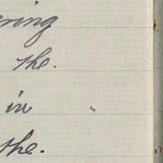 ring
the.
in
the.